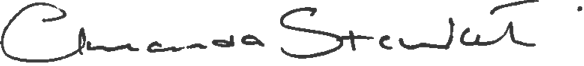 Amanda Stewart